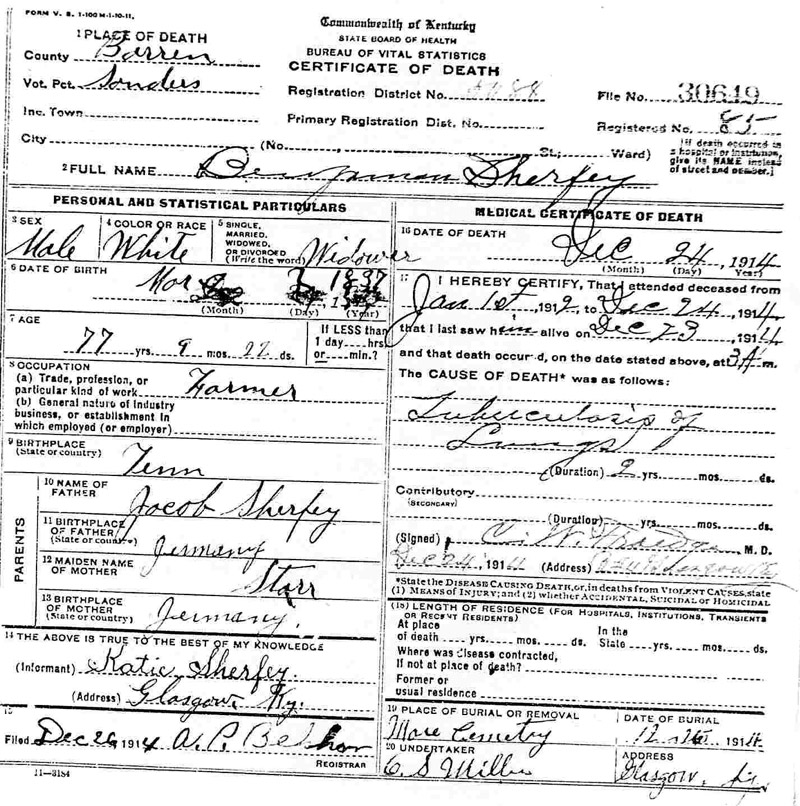 FORM V. S. 1-100 M-1-10-11.
Commonwealth of Kentucky
STATE BOARD OF HEALTH
BUREAU OF VITAL STATISTICS
CERTIFICATE OF DEATH
1 PLACE OF DEATH
County Barren
Vot. Pct. Sonders
Inc. Town
City
Registration District No.
Primary Registration Dist. No.
File No. 30649
Registered No. 85
(No. St.; Ward)
[If death occurred in a hospital or institution, give its NAME instead of street and number.]
2 FULL NAME Benjaman Sherfey
PERSONAL AND STATISTICAL PARTICULARS
3 SEX Male
4 COLOR OR RACE White
5 SINGLE, MARRIED, WIDOWED, OR DIVORCED (Write the word) Widower
6 DATE OF BIRTH Mar 1837
(Month) (Day) (Year)
7 AGE 77 yrs. 9 mos. 22 ds.
If LESS than 1 day hrs or min.?
8 OCCUPATION
(a) Trade, profession, or particular kind of work Farmer
(b) General nature of industry business, or establishment in which employed (or employer)
9 BIRTHPLACE (State or country) Tenn
PARENTS
10 NAME OF FATHER Jacob Sherfey
11 BIRTHPLACE OF FATHER (State or country) Jermany
12 MAIDEN NAME OF MOTHER Starr
13 BIRTHPLACE OF MOTHER (State or country) Jermany.
14 THE ABOVE IS TRUE TO THE BEST OF MY KNOWLEDGE
(Informant) Katie Sherfey.
(Address) Glasgow, Ky.
15
Filed Dec 26, 1914 A. P.
REGISTRAR
11-3184
MEDICAL CERTIFICATE OF DEATH
16 DATE OF DEATH Dec 24, 1914
(Month) (Day) (Year)
17 I HEREBY CERTIFY, That I attended deceased from
Jan 1st, 1912, to Dec 24, 1914.
that I last saw him alive on Dec 23, 1914
and that death occurd, on the date stated above, at 3 A m.
The CAUSE OF DEATH* was as follows:
Tuberculosis of
Lungs
(Duration) 2 yrs. mos. ds.
Contributory
(SECONDARY)
(Duration) yrs. mos. ds.
(Signed) C. W. M. D.
Dec 24, 1914 (Address)
*State the DISEASE CAUSING DEATH, or, in deaths from VIOLENT CAUSES, state
(1) MEANS OF INJURY; and (2) whether ACCIDENTAL, SUICIDAL or HOMICIDAL
(18) LENGTH OF RESIDENCE (FOR HOSPITALS, INSTITUTIONS, TRANSIENTS OR RECENT RESIDENTS)
At place of death yrs. mos. ds. In the State yrs. mos. ds.
Where was disease contracted,
If not at place of death?
Former or
usual residence
19 PLACE OF BURIAL OR REMOVAL
More Cemetry
DATE OF BURIAL
1914
20 UNDERTAKER
C. S Miller
ADDRESS
Glasgow, Ky